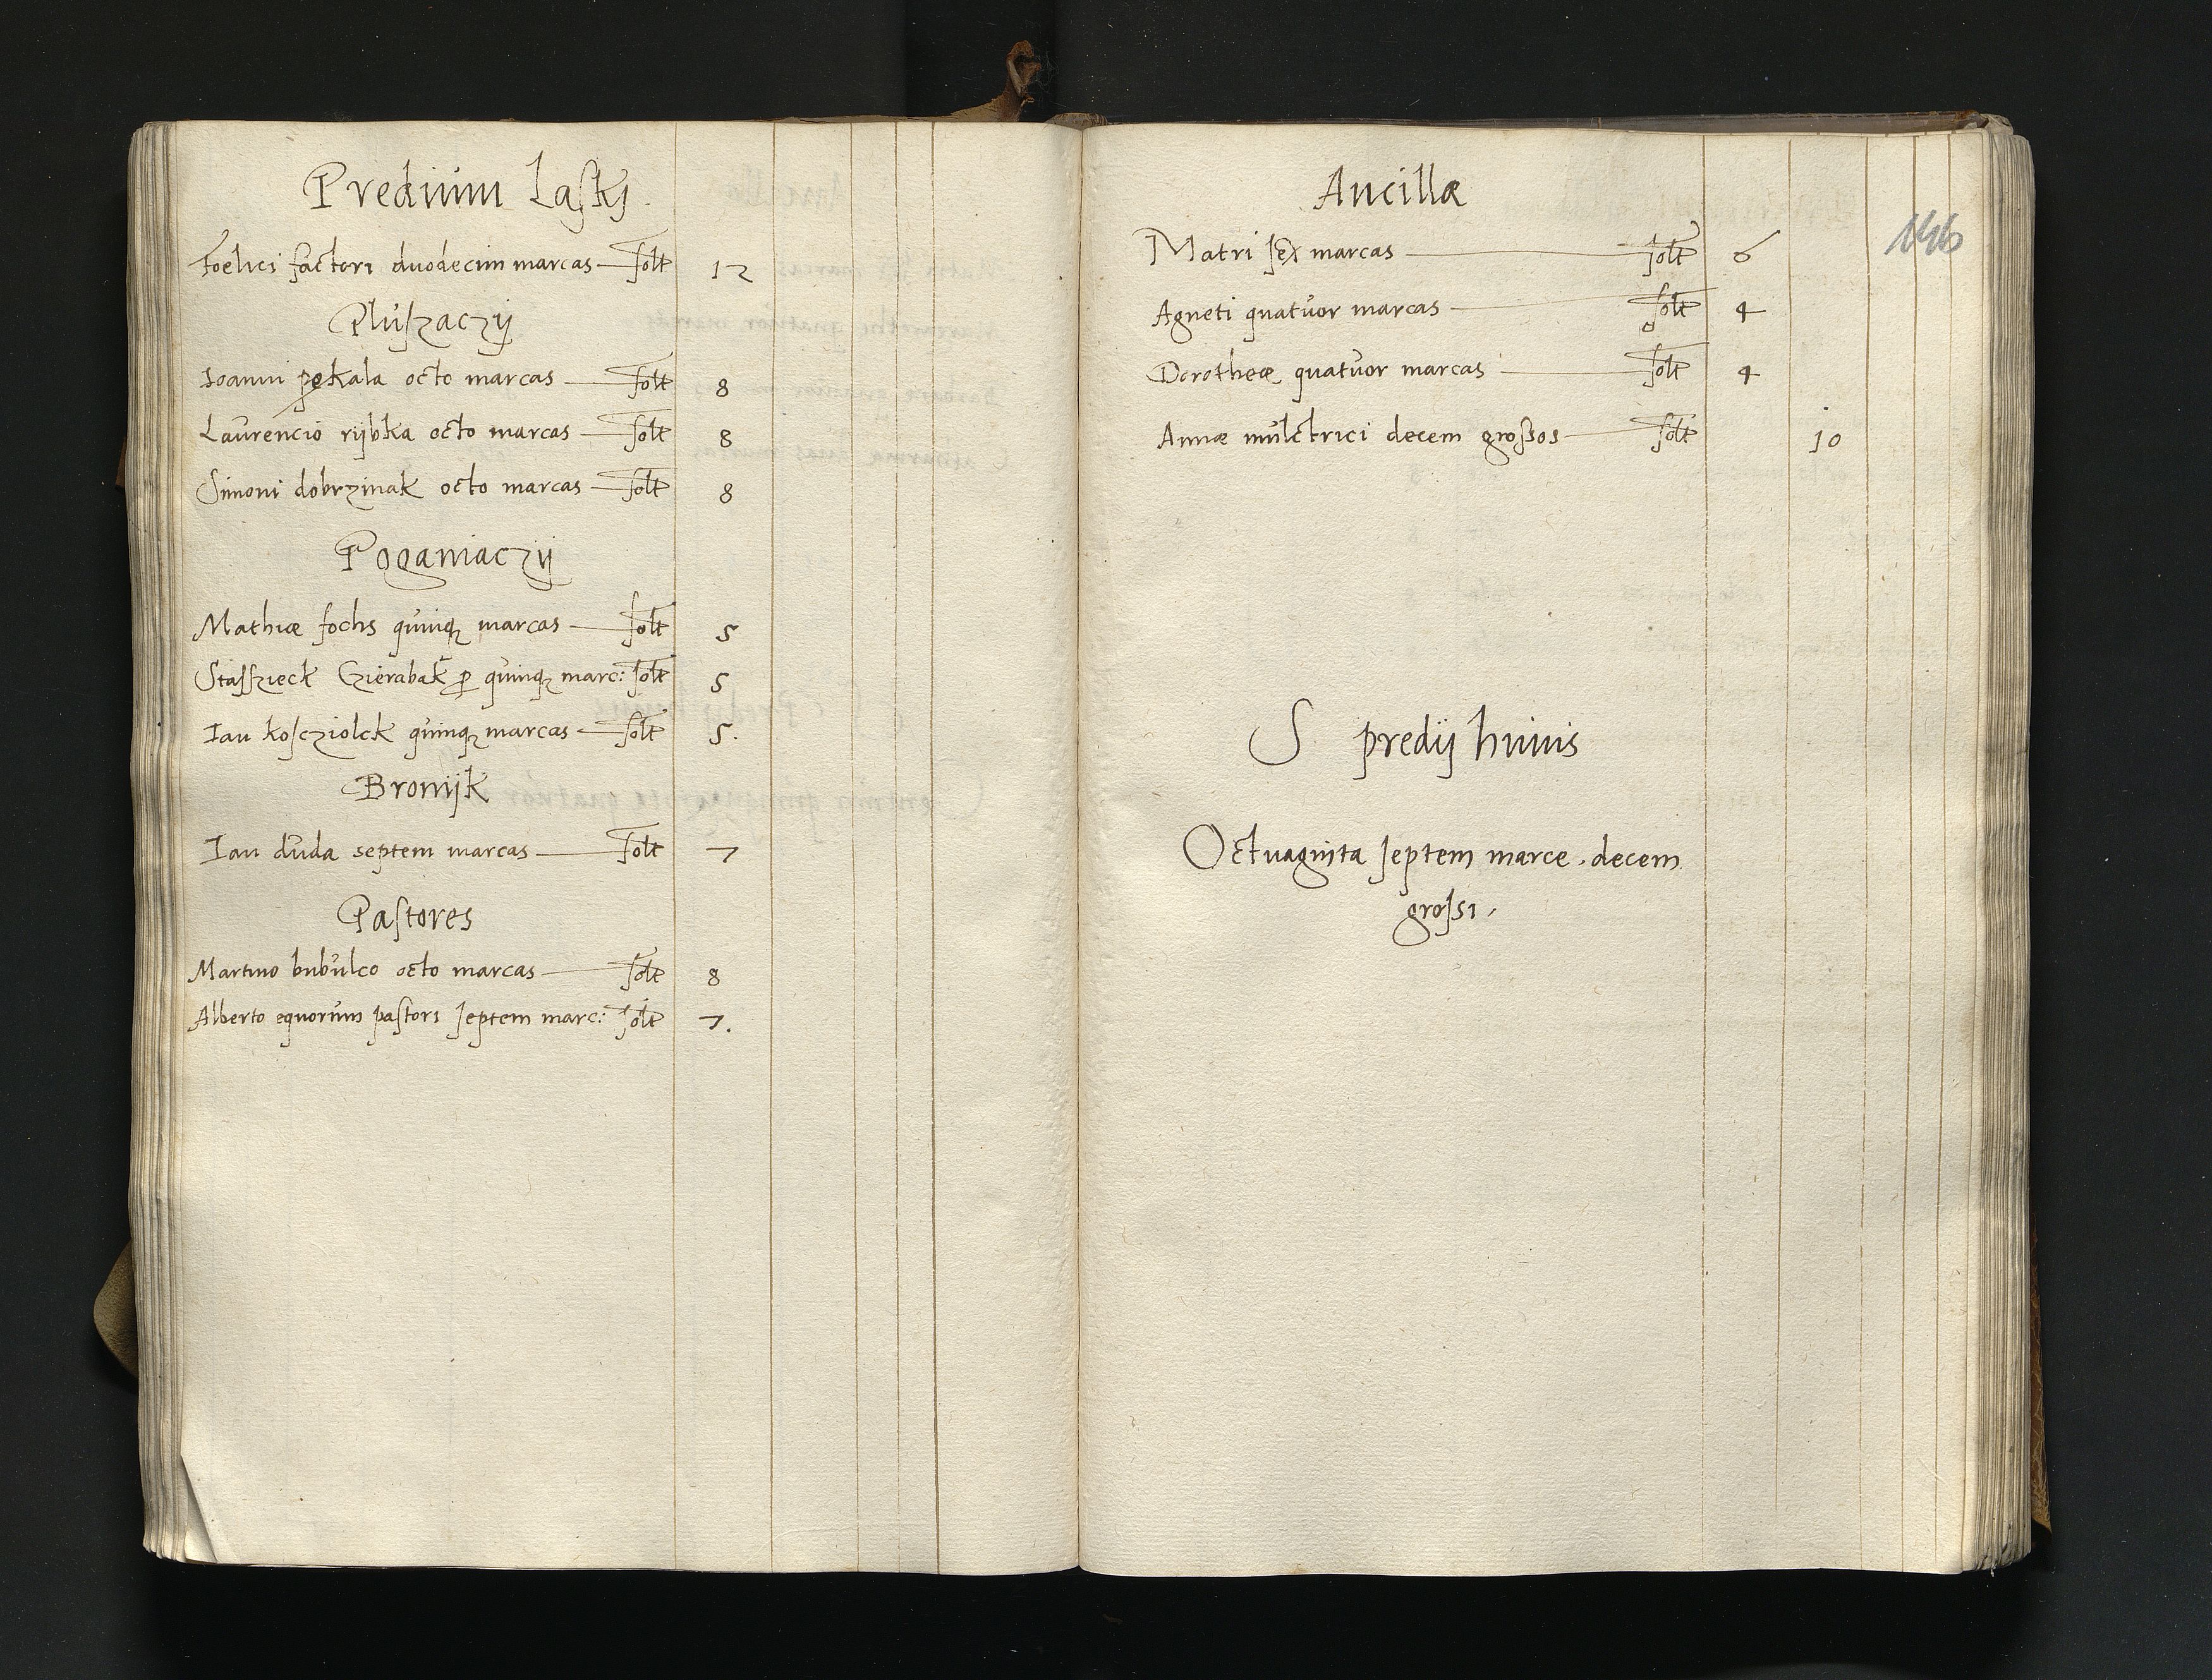 Predium Laskj.
Foelici factori duodecim marcas — solt 12
Pluszaczÿ
Ioanni pękala octo marcas — solt 8
Laurencio rÿbka octo marcas — solt 8
Simoni dobrzinak octo marcas — solt 8
Poganiaczÿ
Mathiæ fochs quinqꝫ marcas — solt 5
Stasszieck Czierabak ꝑ quinqꝫ marc: solt 5
Ian koscziolek quinqꝫ marcas — solt 5.
Bronÿk
Ian duda septem marcas — solt 7
Pastores
Martino bubulco octo marcas — solt 8
Alberto equorum pastori septem marc: solt 7.
Ancillæ
146
Matri sex marcas — solt 6
Agneti quatuor marcas — solt 4
Dorotheæ quatuor marcas — solt 4
Annæ mulctrici decem grossos — solt 10
S predÿ huius
Octuaginta septem marce. decem
grossi.